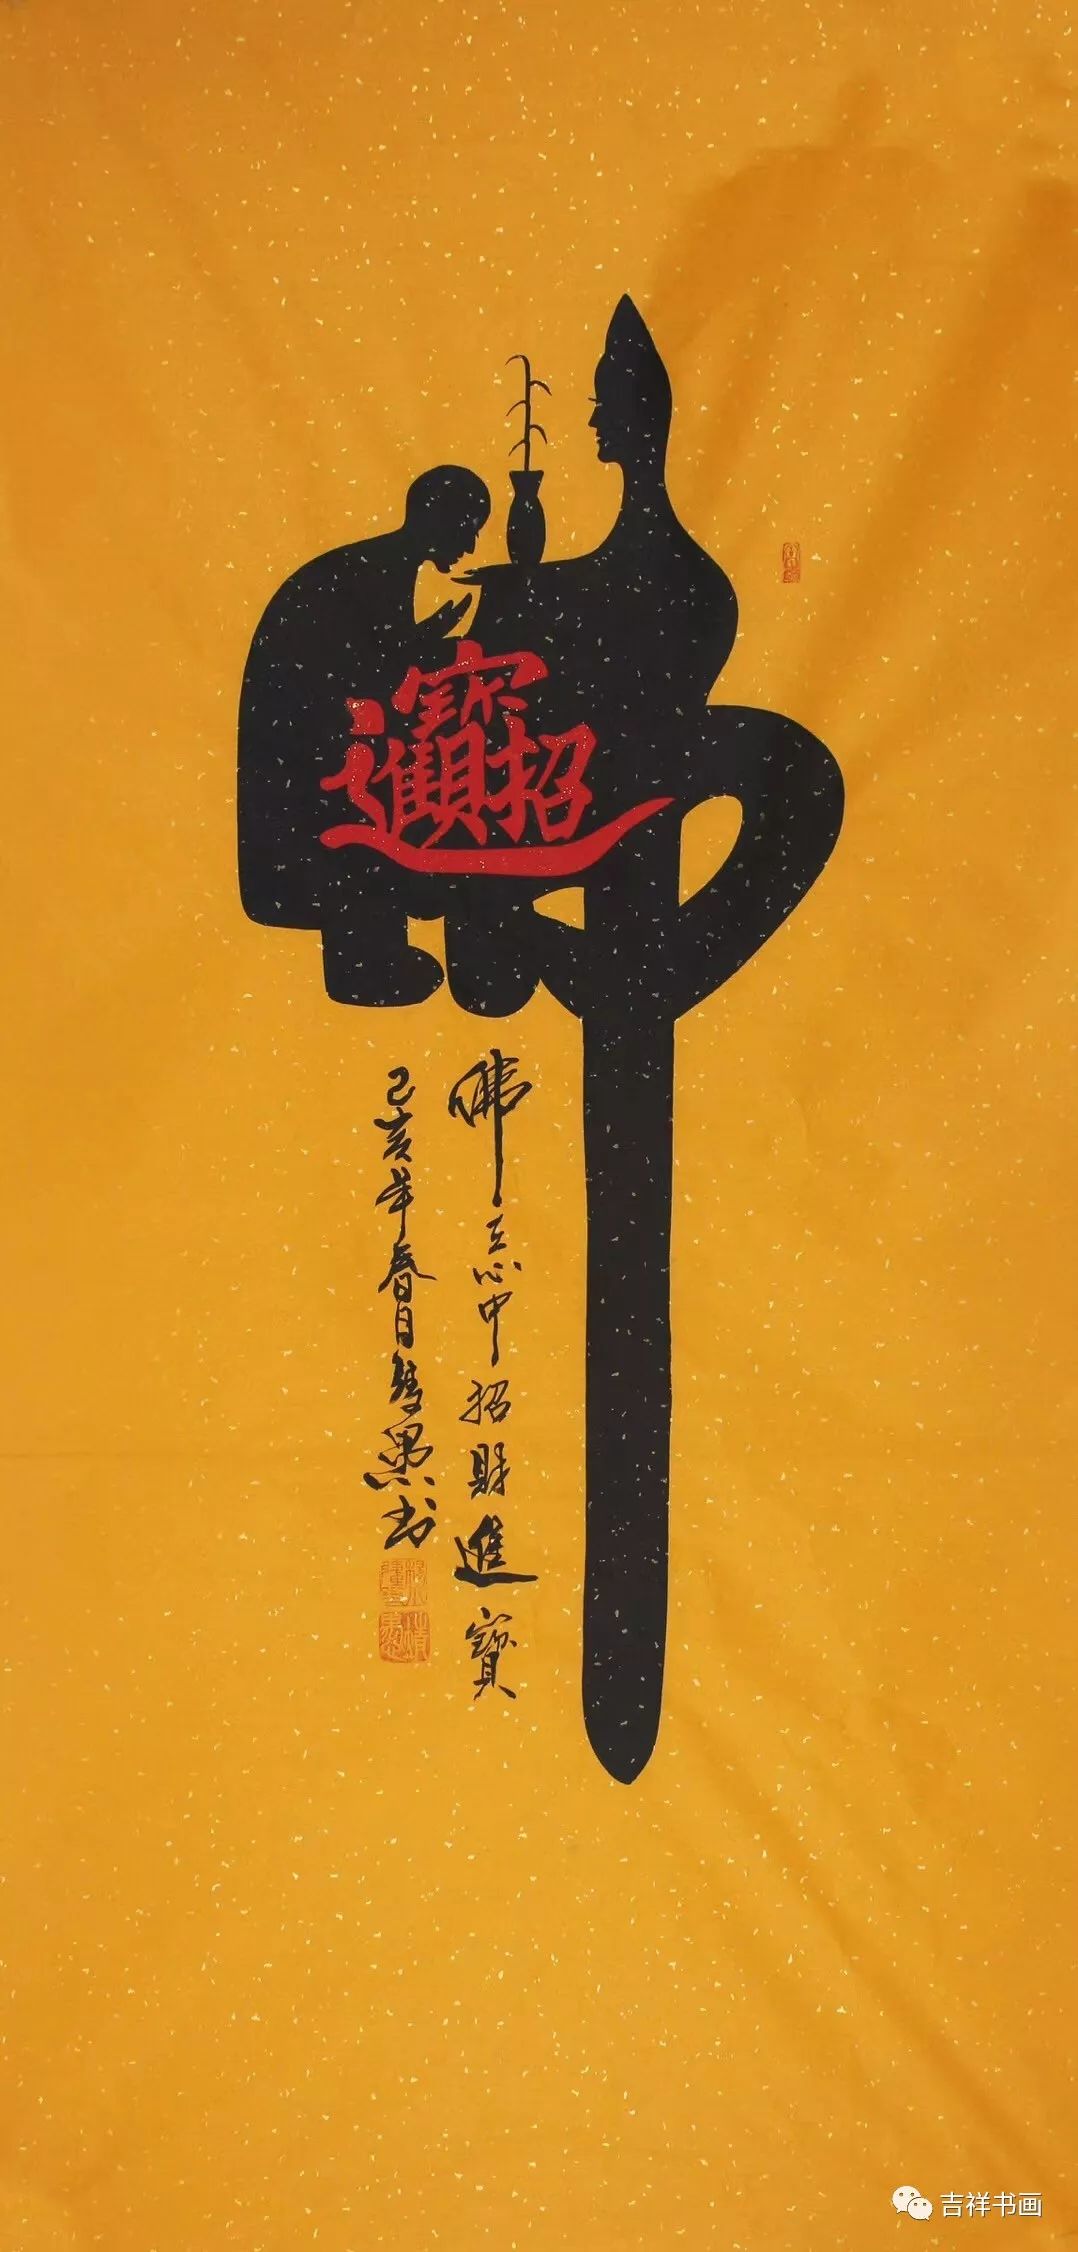 招財進寶
佛在心中招財進寶
己亥年春月愚书
吉祥书画